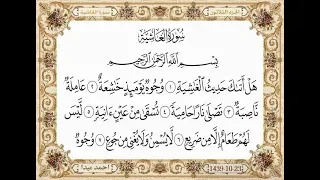 سُورَةُ الْغَاشِيَةِ
بِسْمِ اللَّهِ الرَّحْمَٰنِ الرَّحِيمِ
هَلْ أَتَىٰكَ حَدِيثُ الْغَٰشِيَةِ ١ وُجُوهٌ يَوْمَئِذٍ خَٰشِعَةٌ ٢ عَامِلَةٌ
نَّاصِبَةٌ ٣ تَصْلَىٰ نَارًا حَامِيَةً ٤ تُسْقَىٰ مِنْ عَيْنٍ ءَانِيَةٍ ٥ لَّيْسَ
لَهُمْ طَعَامٌ إِلَّا مِن ضَرِيعٍ ٦ لَّا يُسْمِنُ وَلَا يُغْنِى مِن جُوعٍ ٧ وُجُوهٌ
1439-10-23